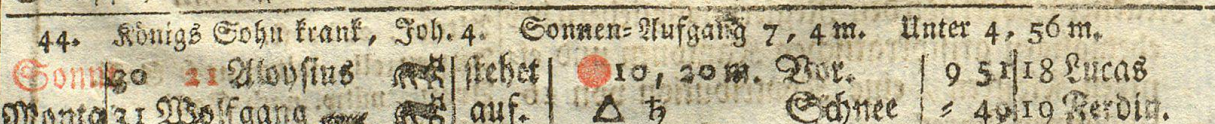 44. Königs Sohn krank, Joh. 4. Sonnen=Aufgang 7, 4 m. Unter 4, 56 m.
Sonnt 30 21 Aloysius stehet 10, 20 m. Vor. 9 51 18 Lucas
Montg 31 Wolfgang auf. △ ♄ Schnee = 49 19 Ferdin.